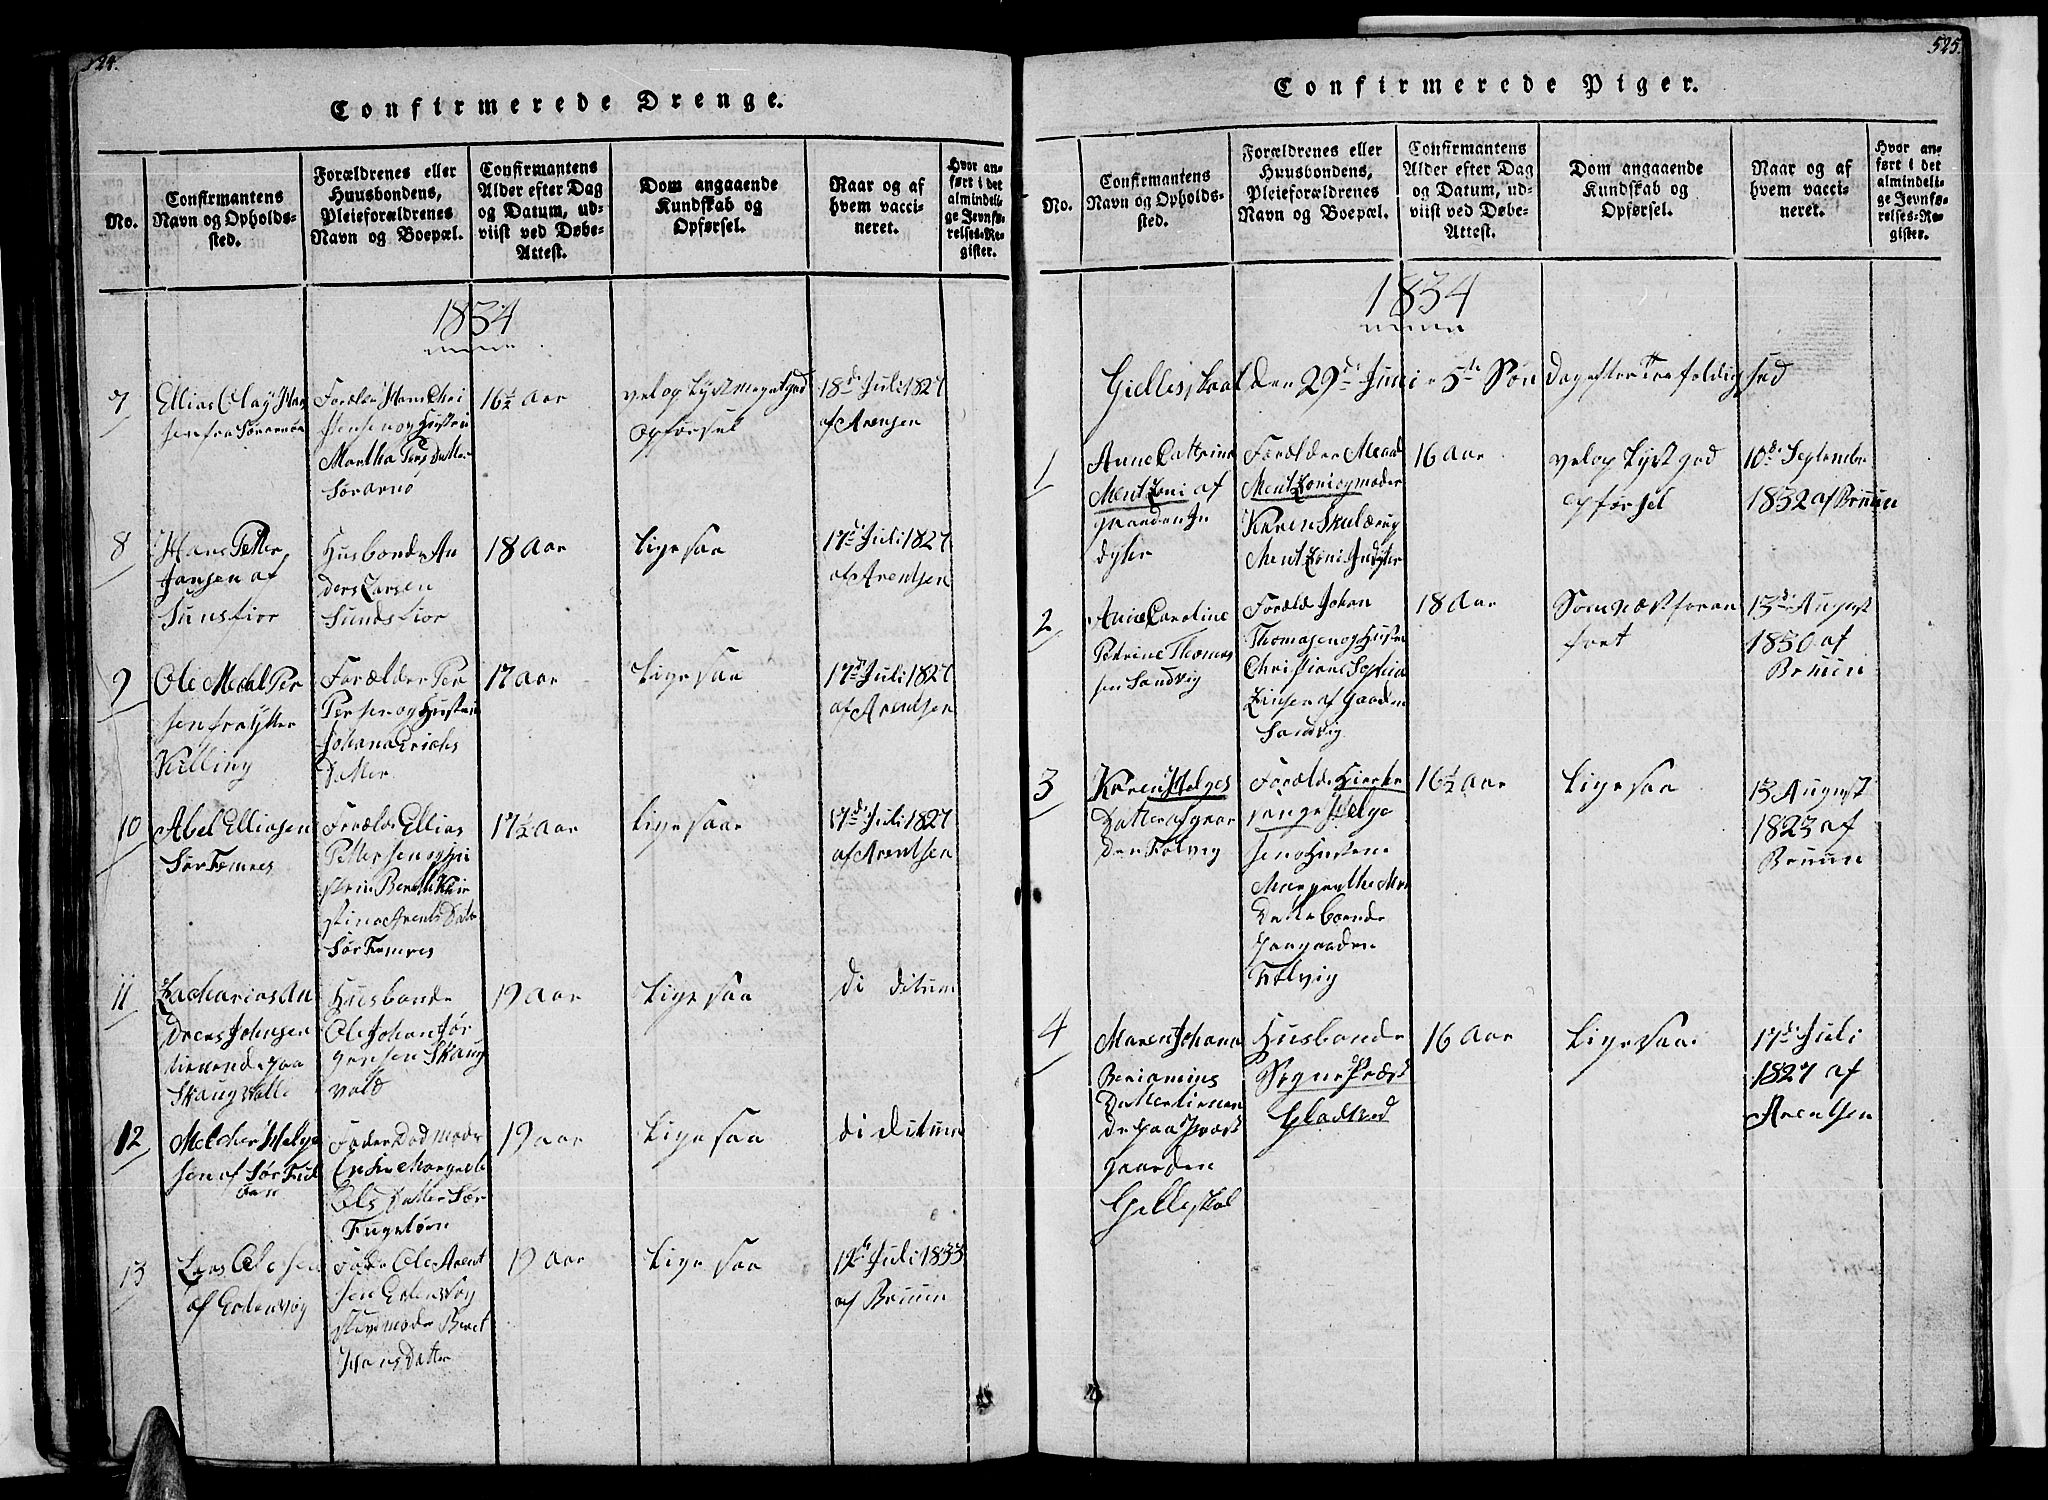 524.
Confirmerede Drenge.
No.
Confirmantens
Navn og Opholds-
sted.
Forældrenes eller
Huusbondens,
Pleieforældrenes
Navn og Boepæl.
Confirmantens
Alder efter Dag
og Datum, ud-
viist ved Døbe-
Attest.
Dom angaaende
Kundskab og
Opførsel.
Naar og af
hvem vacci-
neret.
Hvor an-
ført i det
almindeli-
ge Jevnfø-
relses-Re-
gister.
1834
7
Ellias Olay Han
sen fra Sørarnøe
Foreldre Hans Chri
stensen og Hustru
Martha Pers Datter
Sørarnø
16½ Aar
vel og Lyst meget god
Opførsel
18de Juli 1827
af Arensen
8
Hans Petter
Jansen af
Sunsfior
Husbonde An
ders Larsen
Sundsfior
18 Aar
Ligesaa
17de Juli 1827
af Arentsen
9
Ole Medal Per
sen fra Ytter
Killing
Forælder Per
Persen og Hustru
Johana Erichs
Datter
17 Aar
Ligesaa
17de Juli 1827
af Arentsen
10
Abel Elliasen
Sør Femres
Foreldr Ellias
Pettersen og Hu
strue Beret Kir
stina Arents Datr
Sør Femres
17½ Aar
Ligesaa
17de Juli 1827
af Arentsen
11
Zacharias An
dreas Johnsen
tienende paa
Skaugvolle
Husbonde
Ole Johan Jør
gensen Skaug
vold
19 Aar
Ligesaa
di ditum
12
Melcher Helge
sen af Sør Fu
øen
Fader Død moder
Enke Margrete
Ols Datter Sør
Fugeløen
19 Aar
Ligesaa
di ditum
13
Lars Olesen
af Endensvog
Fader Ole Arent
sen Endensvog
stivmoder Beret
Hans Datter
19 Aar
Ligesaa
12de Juli 1833
af Bruun
525.
Confirmerede Piger.
No.
Confirmantens
Navn og Opholds-
sted.
Forældrenes eller
Huusbondens,
Pleieforældrenes
Navn og Boepæl.
Confirmantens
Alder efter Dag
og Datum, ud-
viist ved Døbe-
Attest.
Dom angaaende
Kundskab og
Opførsel.
Naar og af
hvem vacci-
neret.
Hvor an-
ført i det
almindeli-
ge Jevnfø-
relses-Re-
gister.
1834
Gielleskaal den 29de Juni 5te Søndag efter Trefoldighed
1
Anne Cattrina
Mentzoni af
gaarden In
dyer
Forældre
Mentzoni og moder
Karen Skulderug
Mentzoni Indyer
16 Aar
vel og Lyst god
opførsel
10de September
1832 af Bruun
2
Ane Caroline
Petrine Thomas
sen Sandvig
Forælde Johan
Thomasen og Hustru
Christiane Sophia
Zinsen af Gaarden
Sandvig
18 Aar
Som næst foran
ført
13de August
1830 af
Bruun
3
Karen Helges
Datter af gaar
den Følvig
Forælde Kirke
sanger Helge
sen og Hustrue
Margrethe
Datter boende
paa gaarden
Følvig
16½ Aar
Ligesaa
13 August
1823 af
Bruun
4
Maren Johana
Beniamins
Datter tienen
de paa Præst
gaarden
Gilleskaal
Husbonde
Sogne Præst
Gladtved
16 Aar
Ligesaa
17de Juli
1827 af
Arentsen